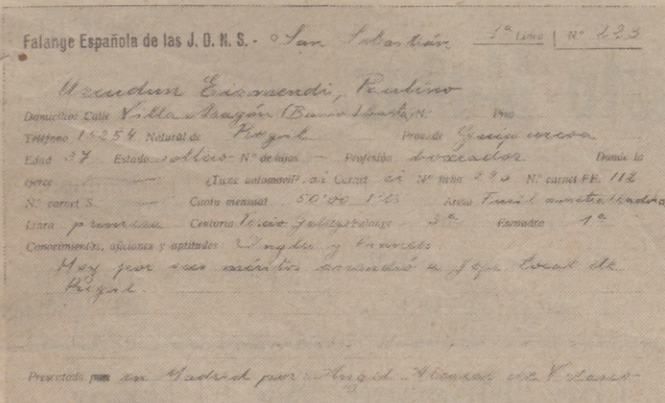 Falange Española de las J. O. N. S. - San Sebastián 1ª Línea Nº 123
Uzcudun Eizmendi, Paulino
Domicilio: Calle Villa Aragón (Barrio Nº Piso
Teléfono 15254 Natural de Régil Prov. de Guipúzcoa
Edad 37 Estado soltero Nº de hijos — Profesión boxeador Donde la
ejerce — ¿Tiene automóvil? si Carnet si Nº Nº carnet F.E. 112
Nº carnet S. — Cuota mensual 50'00 Armas Fusil ametrallador
Línea primera Centuria Falange 3ª Escuadra 1ª
Conocimientos, aficiones y aptitudes Inglés y francés
Hoy por sus méritos ascendió a Jefe Local de
Régil.
Presentado por en Madrid por Angel Alcazar de Velasco